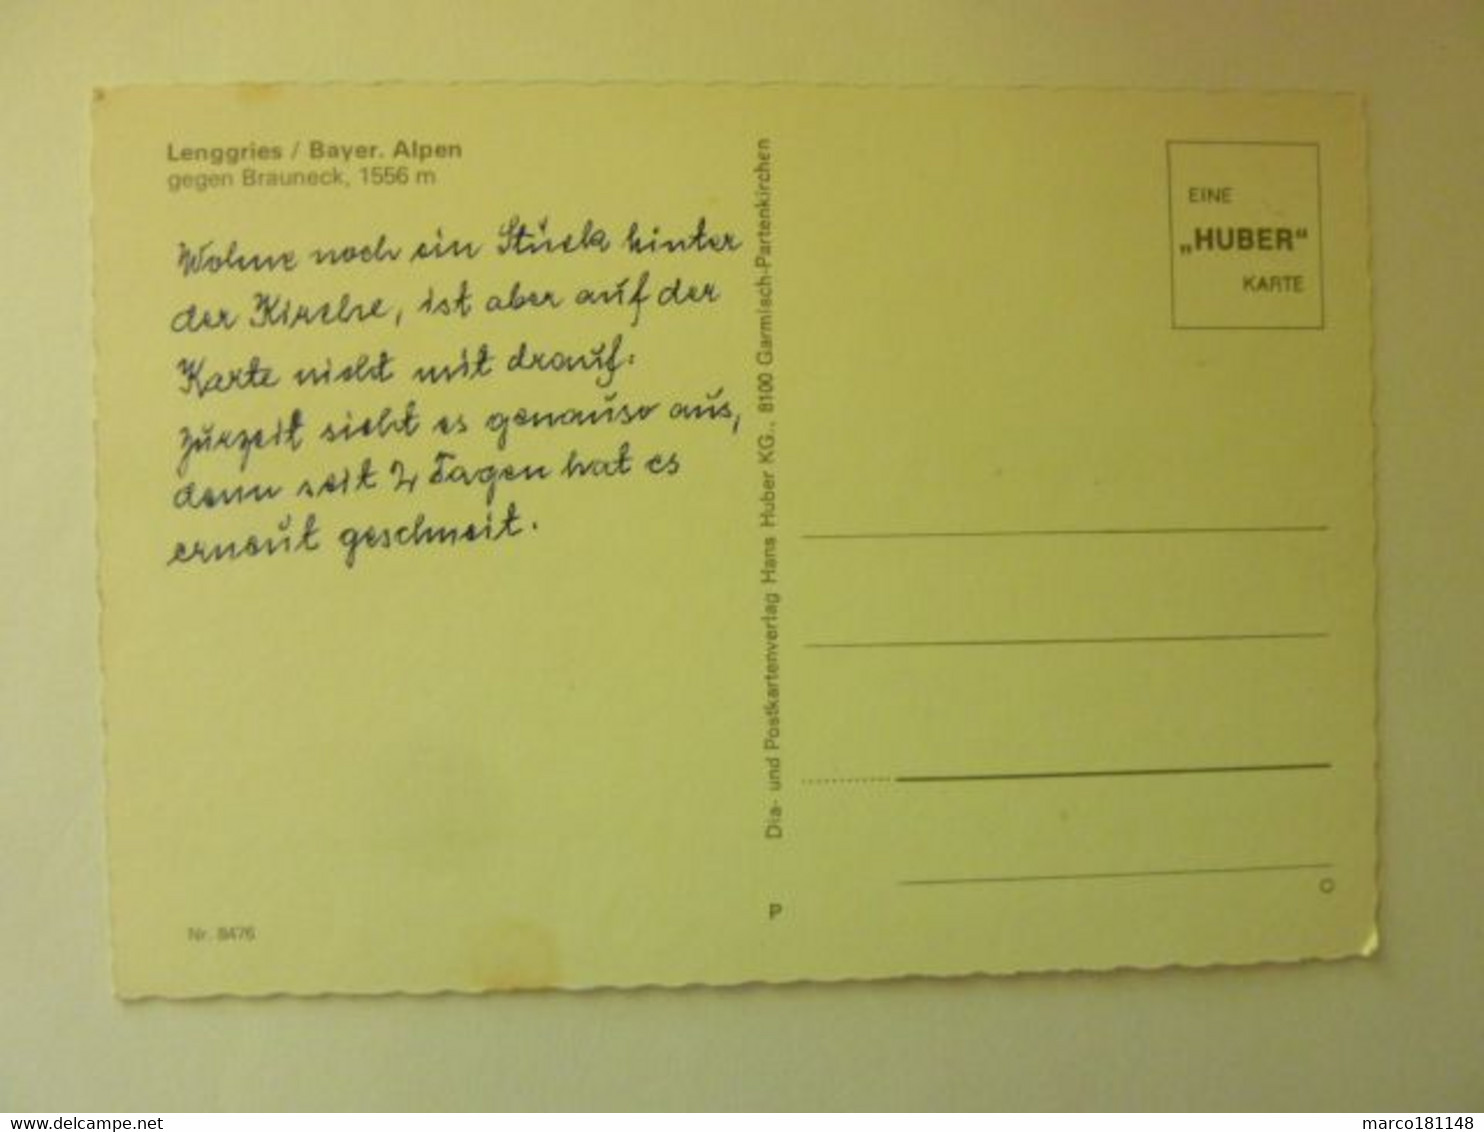 Lenggries / Bayer. Alpen
gegen Brauneck, 1556 m
Wohne noch ein Stück hinter
der Kirche, ist aber auf der
Karte nicht mit drauf.
Zurzeit sieht es genauso aus,
denn seit 2 Tagen hat es
erneut geschneit.
Nr. 8476
Dia- und Postkartenverlag Hans Huber KG., 8100 Garmisch-Partenkirchen
P
EINE
„HUBER"
KARTE
delcampe.net
marco181148